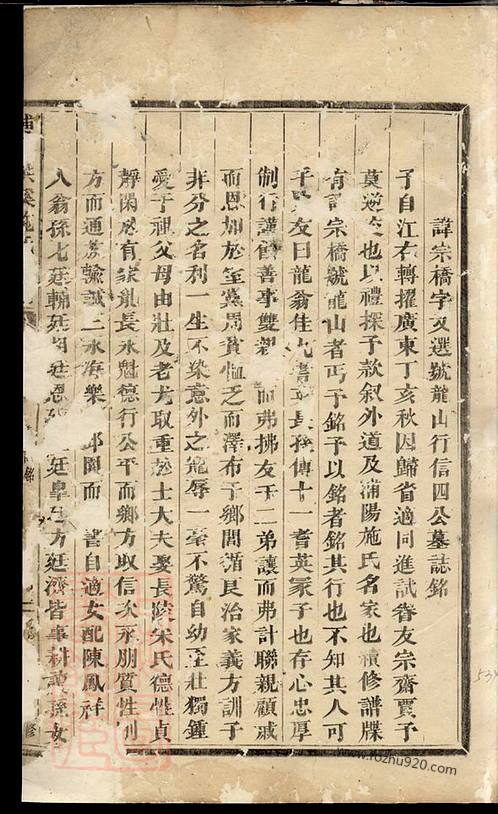 諱宗橋字文選號龍山行信四公墓誌銘
予自江右轉擢廣東丁亥秋因歸省適同進試眷友宗齋賈予
莫逆友也以禮探予款叙外道及浦陽施氏名家也續修譜牒
有諱宗橋號龍山者丐予銘予以銘者銘其行也不知其人可
乎賈友曰龍翁佳九耆英長孫傳十一耆英冢子也存心忠厚
制行謹
善事雙親
而弗拂友于二弟讓而弗計聯親顧戚
而恩加於至黨周貧恤乏而澤布于鄉閭循良治家義方訓子
非分之名利一生不染意外之寵辱一毫不驚自幼至壯獨鍾
愛于祖父母由壯及老尤取重於士大夫娶長陵朱氏德性貞
靜閑
有家
長永魁德行公平而鄉方取信次永朋質性
方而通
輸誠二永海樂
閨而
書自適女配陳鳳祥
人翁孫七廷輔廷
廷恩
廷皐
方廷濟皆事耕讀孫女
葉溪施氏
銘
修
www.rozhu920.com